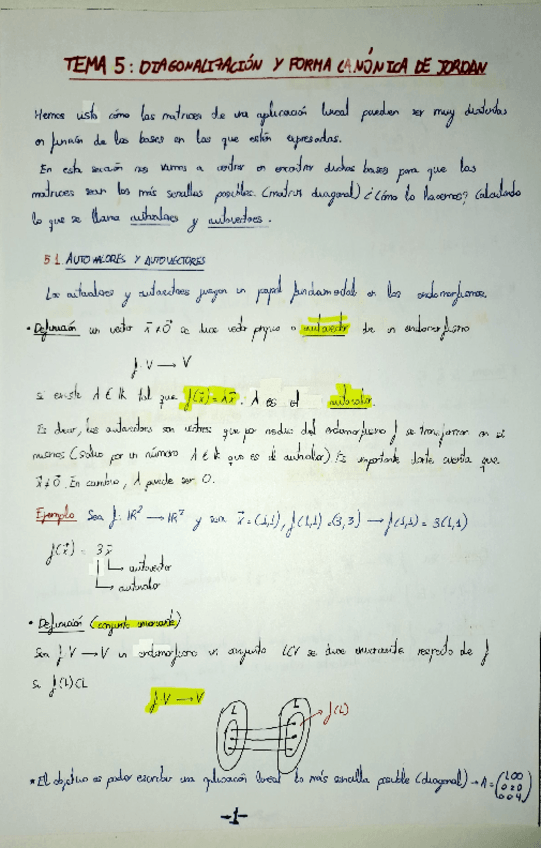 TEMA 5: DIAGONALIZACIÓN Y FORMA CANÓNICA DE JORDAN
Hemos visto cómo las matrices de una aplicación lineal pueden ser muy distintas
en función de las bases en las que estén expresadas.
En esta sección nos vamos a centrar en encontrar dichas bases para que las
matrices sean los más sencillas posibles. (matriz diagonal) ¿Cómo lo hacemos? Calculando
lo que se llama autovalores y autovectores.
5.1 AUTOVALORES Y AUTOVECTORES
Los autovalores y autovectores juegan un papel fundamental en los endomorfismos.
• Definición un vector x⃗ ≠ 0⃗ se dice vector propio o autovector de un endomorfismo
f: V → V
si existe λ ∈ K tal que f(x⃗) = λx⃗. λ es el autovalor.
Es decir, los autovectores son vectores que por medio del endomorfismo f se transforman en sí
mismos (salvo por un número λ ∈ K que es el autovalor). Es importante darte cuenta que
x⃗ ≠ 0⃗. En cambio, λ puede ser 0.
Ejemplo Sea f: IR² → IR² y sea x⃗ = (1,1), f(1,1) = (3,3) → f(1,1) = 3(1,1)
f(x⃗) = 3x⃗
autovector
autovalor
• Definición (conjunto invariante)
Sea f: V → V un endomorfismo un conjunto L⊂V se dice invariante respecto de f
si f(L)⊂L
f: V → V
L L f(L)
* El objetivo es poder escribir una aplicación lineal lo más sencilla posible (diagonal) → A = (1 0 0
0 2 0
0 0 4)
-1-